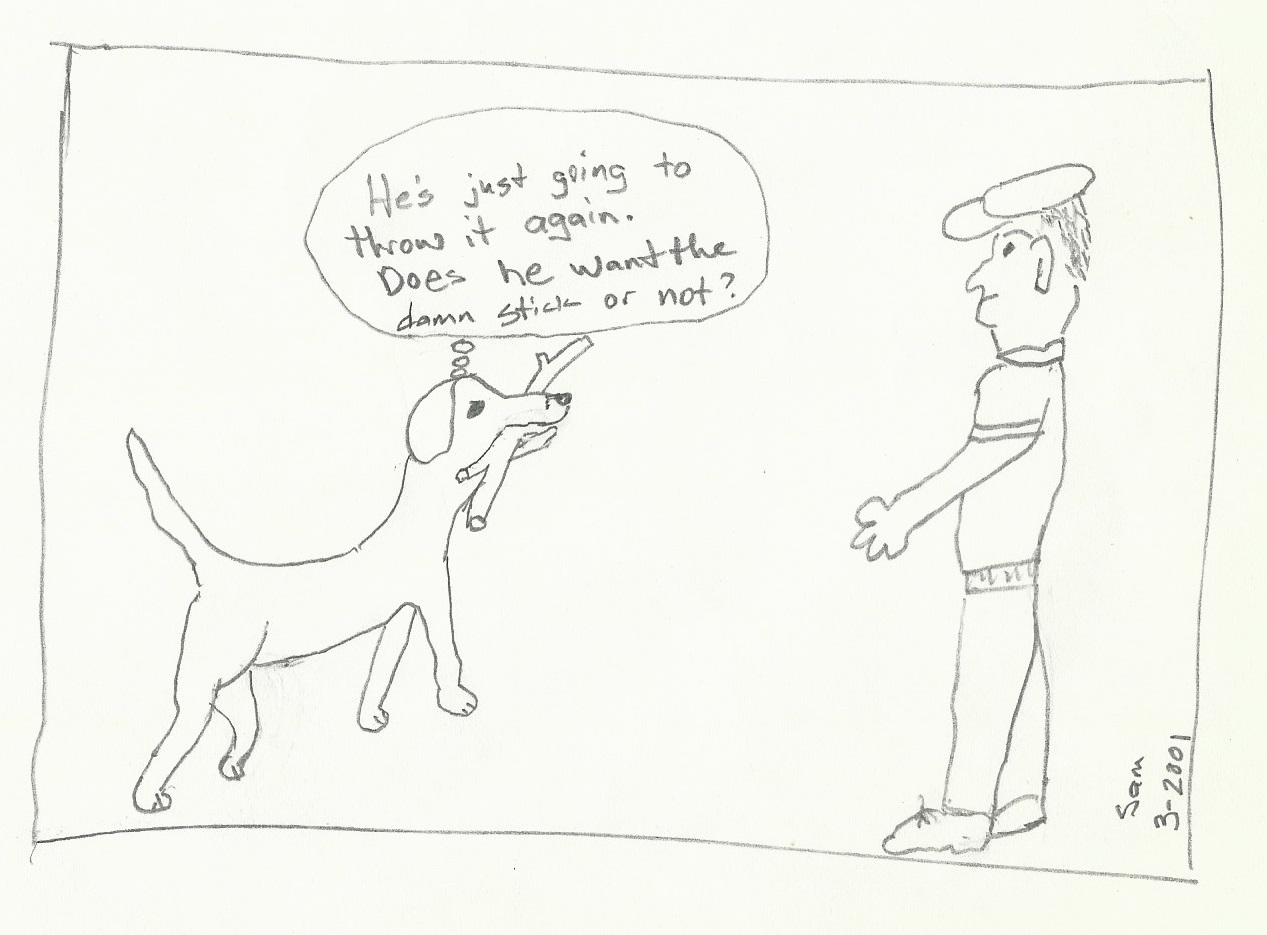 He's just going to
throw it again.
Does he want the
damn stick or not?
Sam
3-2001